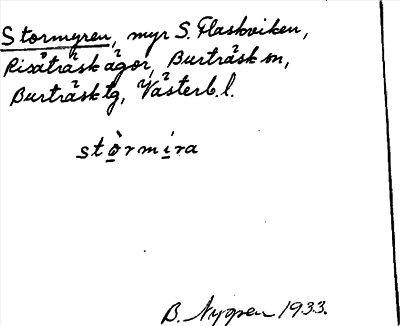 Stormyren, myr S. Flaskviken,
Risåträsk ägor, Burträsk sn,
Burträsk tg, Västerb. l.
stòrmira
B. Nygren 1933.